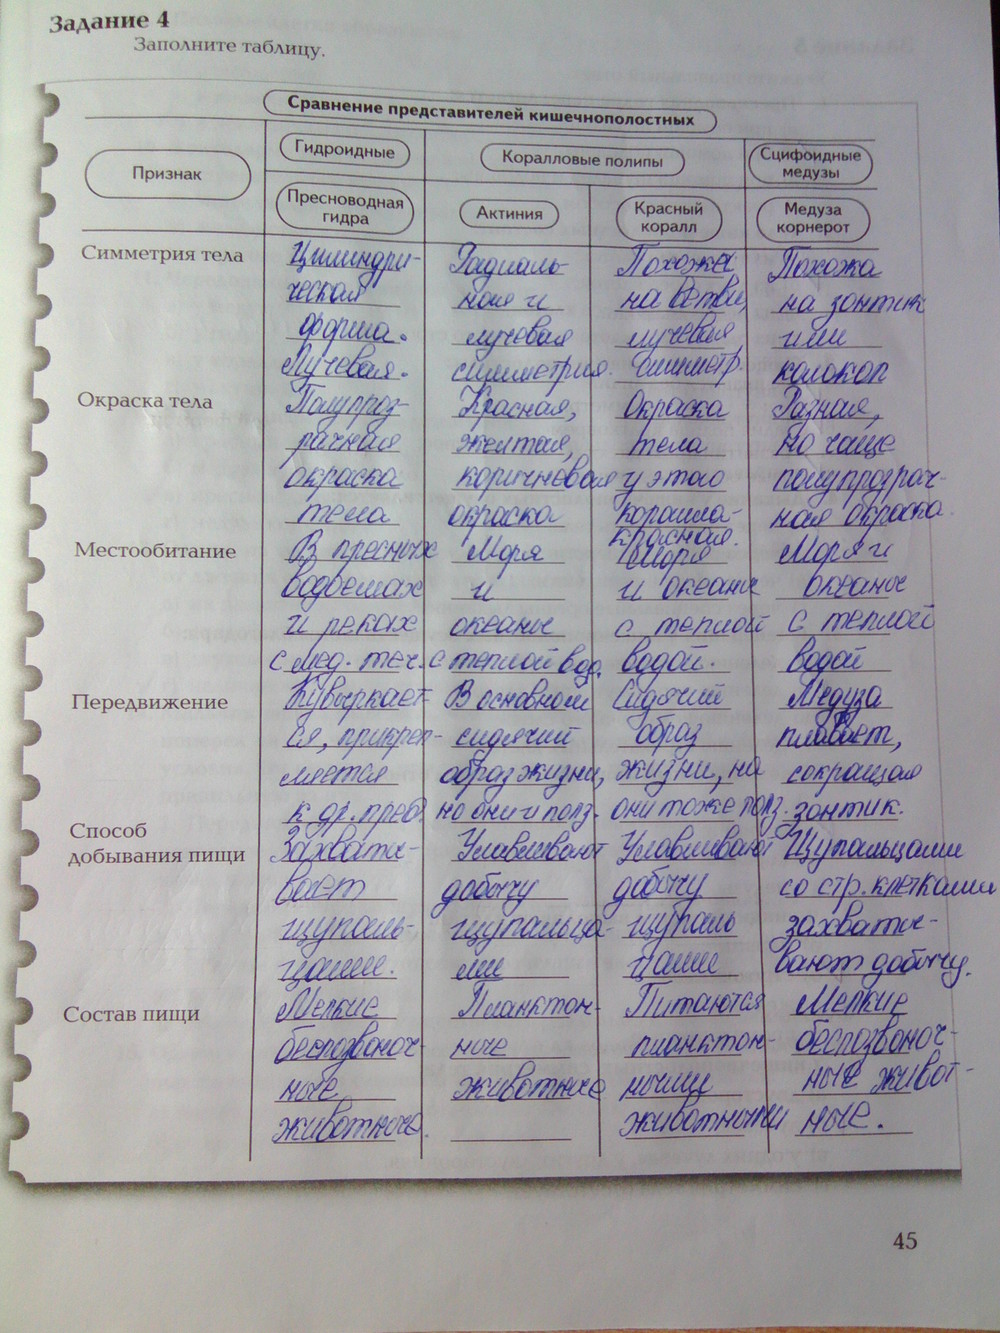 Задание 4
Заполните таблицу.
Сравнение представителей кишечнополостных
Признак
Гидроидные
Коралловые полипы
Сцифоидные
медузы
Пресноводная
гидра
Актиния
Красный
коралл
Медуза
корнерот
Симметрия тела
Цилиндри-
ческая
форма.
Лучевая.
Радиаль-
ная и
лучевая
симметрия.
Похожа
на ветви,
лучевая
симметр.
Похожа
на зонтик
или
колокол
Окраска тела
Полупроз-
рачная
окраска
тела
Красная,
желтая,
коричневая
окраска
Окраска
тела
у этого
коралла-
красная.
Разная,
но чаще
полупрозрач-
ная окраска.
Местообитание
В пресных
водоемах
и реках
с мед. теч.
Моря
и
океаны
с теплой вод.
Моря
и океаны
с теплой
водой.
Моря и
океаны
с теплой
водой
Передвижение
Кувыркает-
ся, прикреп-
ляется
к др. пред.
В основном
сидячий
образ жизни,
но они и полз.
Сидячий
образ
жизни, но
они тоже полз.
Медуза
плавает,
сокращая
зонтик.
Способ
добывания пищи
Захваты-
вает
щупаль-
цами.
Улавливают
добычу
щупальца-
ми
Улавливают
добычу
щупаль
цами
Щупальцами
со стр. клетками
захваты-
вают добычу.
Состав пищи
Мелкие
беспозвоноч-
ные
животные.
Планктон-
ные
животные
Питаются
планктон-
ными
животными
Мелкие
беспозвоноч-
ные живот-
ные.
45